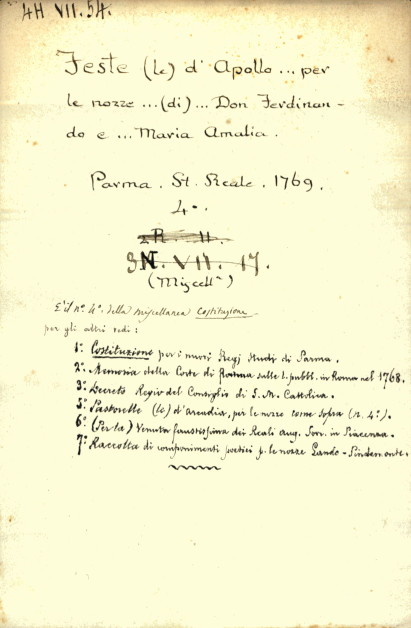 4H VII. 54.
Feste (le) d' Apollo ... per
le nozze ... (di) ... Don Ferdinan-
do e ... Maria Amalia.
Parma. St. Reale. 1769.
4°.
2R. II.
3N. VII. 17.
(Miscell^a)
È il n°. 4°. della miscellanea Costituzione
per gli altri vedi:
1°. Costituzione per i nuovi Regj Studi di Parma.
2°. Memoria della Corte di Parma sulle l. pubb. in Roma nel 1768.
3°. Decreto Regio del Consiglio di S. M. Cattolica.
5°. Pastorelle (le) d'arcadia, per le nozze come sopra (n. 4°.).
6° (Per la) Venuta faustissima dei Reali aug. Sovr. in Piacenza.
7°. Raccolta di componimenti poetici p. le nozze Lando-Pindemonte.